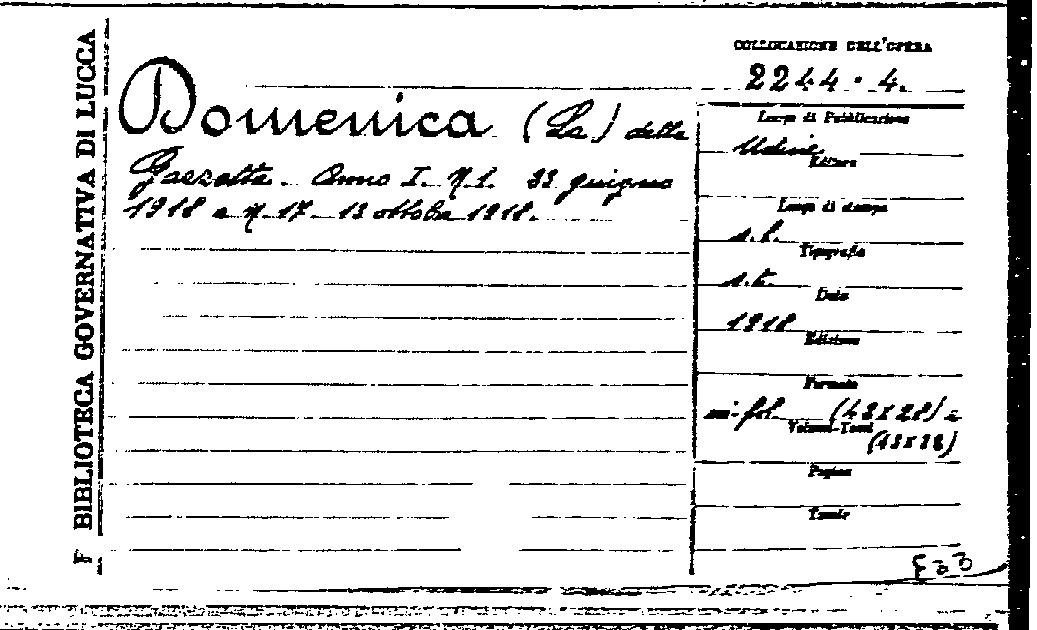 F BIBLIOTECA GOVERNATIVA DI LUCCA
COLLOCAZIONE DELL'OPERA
2244 · 4.
Domenica (La) della
Gazzetta. Anno I. N. 1. 23 giugno
1918 a N. 17 - 13 ottobre 1918.
Luogo di Pubblicazione
Udine
Editore
Luogo di stampa
s.l.
Tipografia
s.t.
Data
1918
Edizione
Formato
in-fol. (43x28) e
Volumi-Tomi
(43x28)
Pagine
Tavole